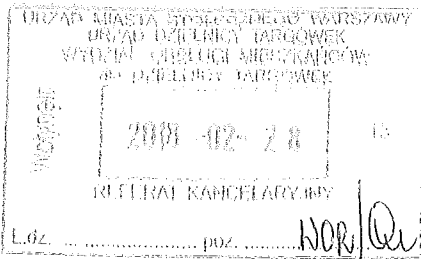 URZĄD MIASTA STOŁECZNEGO WARSZAWY
URZĄD DZIELNICY TARGÓWEK
WYDZIAŁ OBSŁUGI MIESZKAŃCÓW
DZIELNICY TARGÓWEK
2018 -02- 2 8
REFERAT KANCELARYJNY
L.dz. .................... poz. .......... WOR/